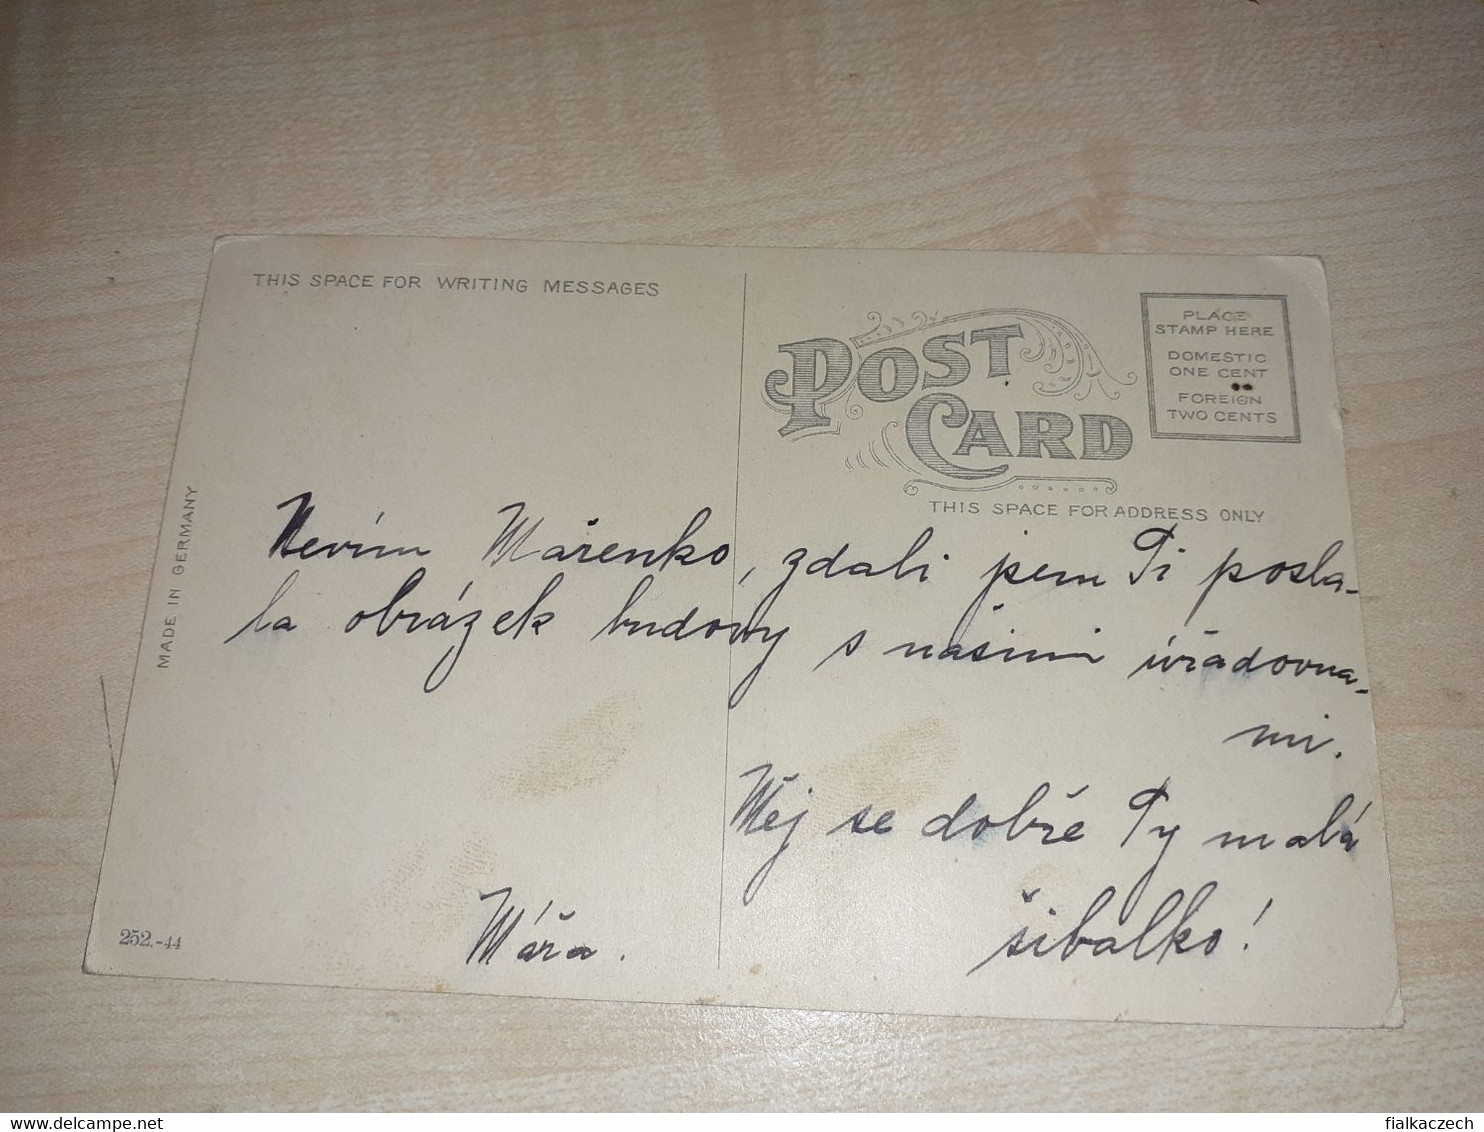 THIS SPACE FOR WRITING MESSAGES
POST
CARD
PLACE
STAMP HERE
DOMESTIC
ONE CENT
FOREIGN
TWO CENTS
THIS SPACE FOR ADDRESS ONLY
MADE IN GERMANY
Nevím Mařenko, zdali jsem Ti posla-
la obrázek budovy s našimi úřadovna-
mi.
Měj se dobře Ty malá
šibalko!
Mářa.
252.-44
delcampe.net
fialkaczech